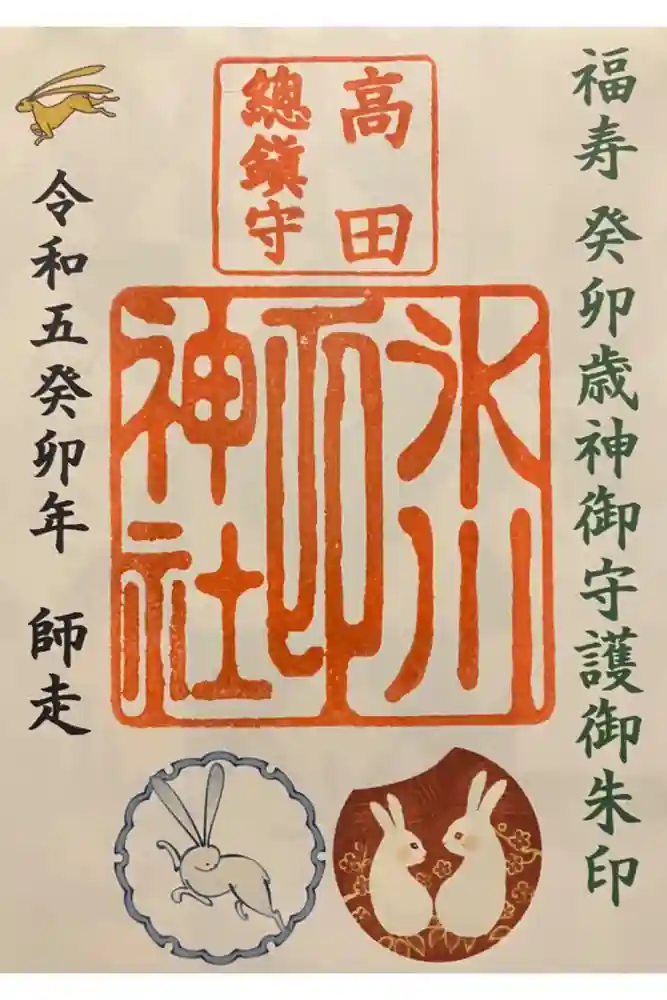 福寿 癸卯歳神御守護御朱印
高田
總鎮守
氷川
神社
令和五癸卯年 師走